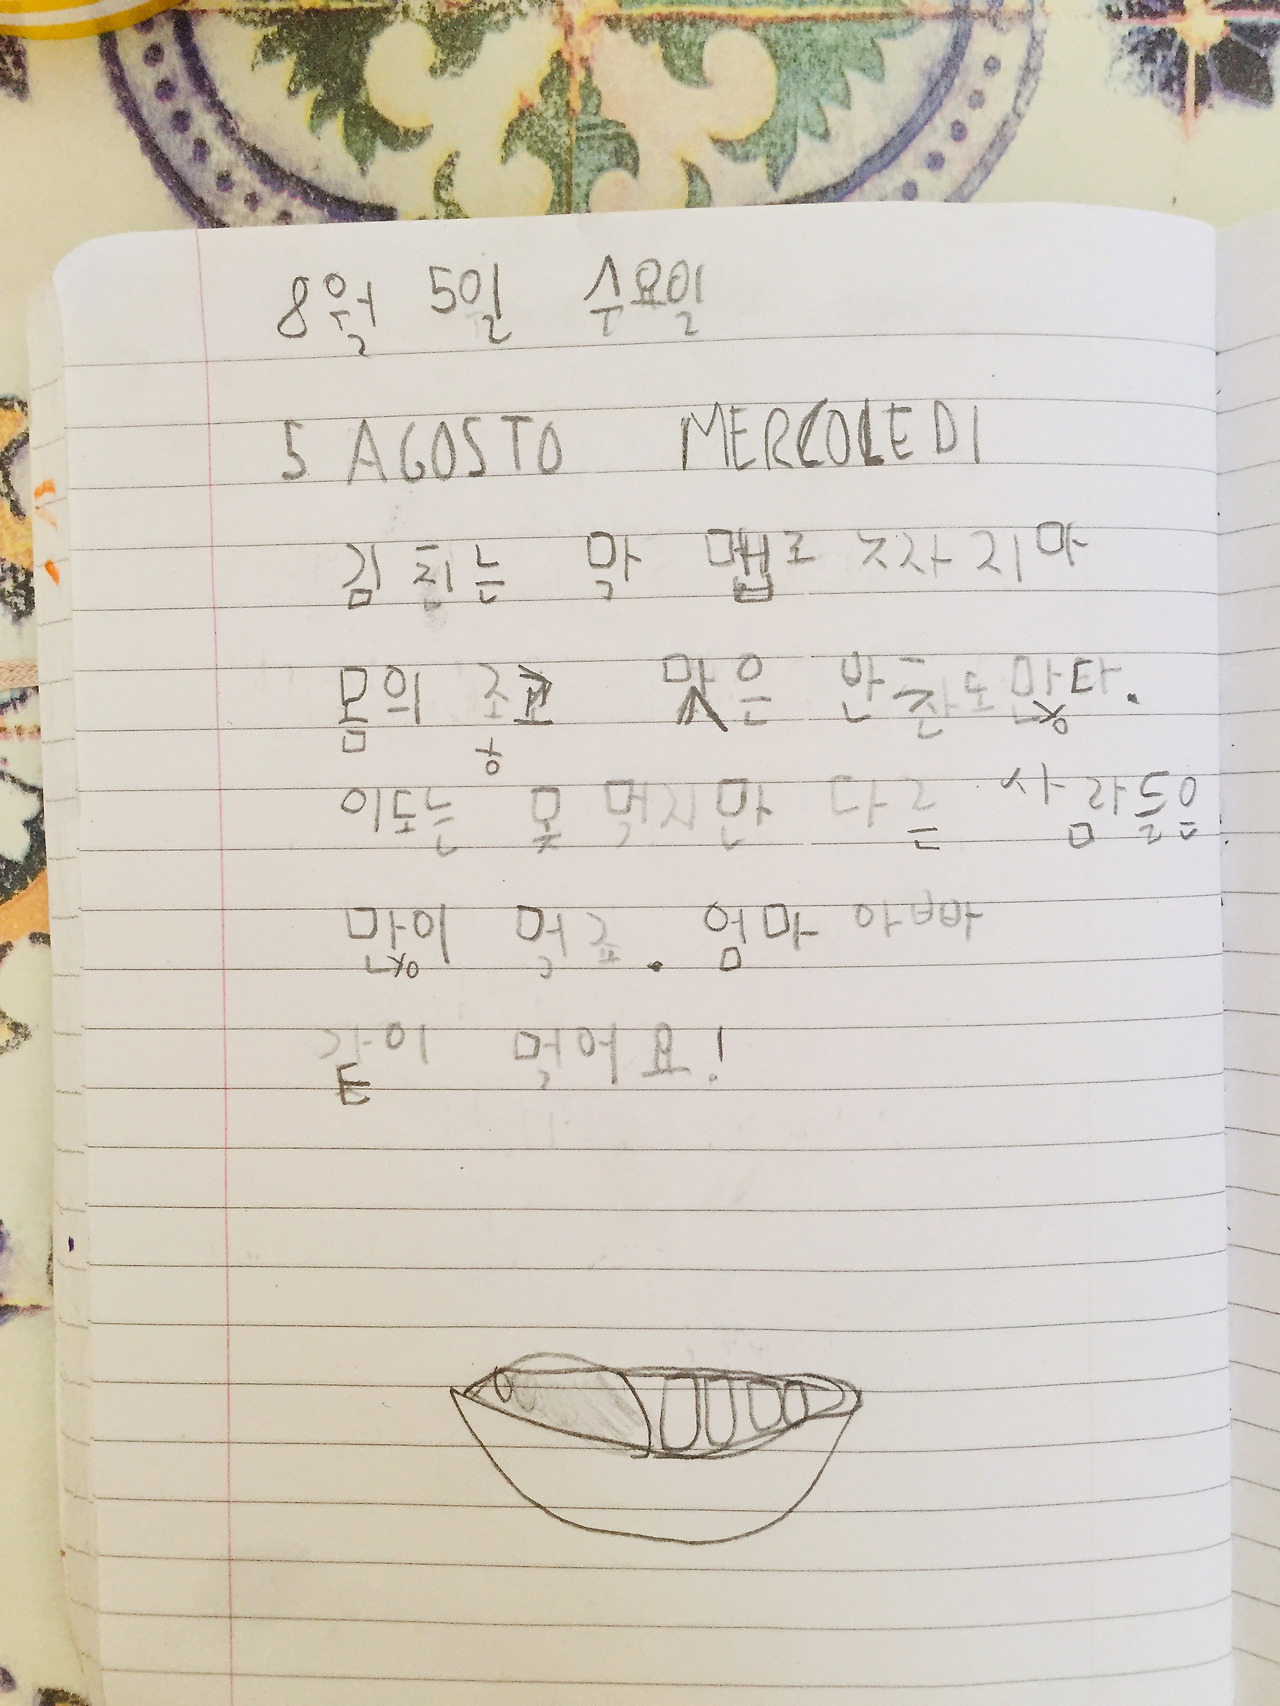 8월 5일 수요일
5 AGOSTO MERCOLEDI
김칟는 막 맵로 짜지마
몸의 좋고 맜은 반찬도 많다.
이도는 못 먹지만 다른 사람들은
많이 먹죠. 엄마 아빠
같이 먹어요!